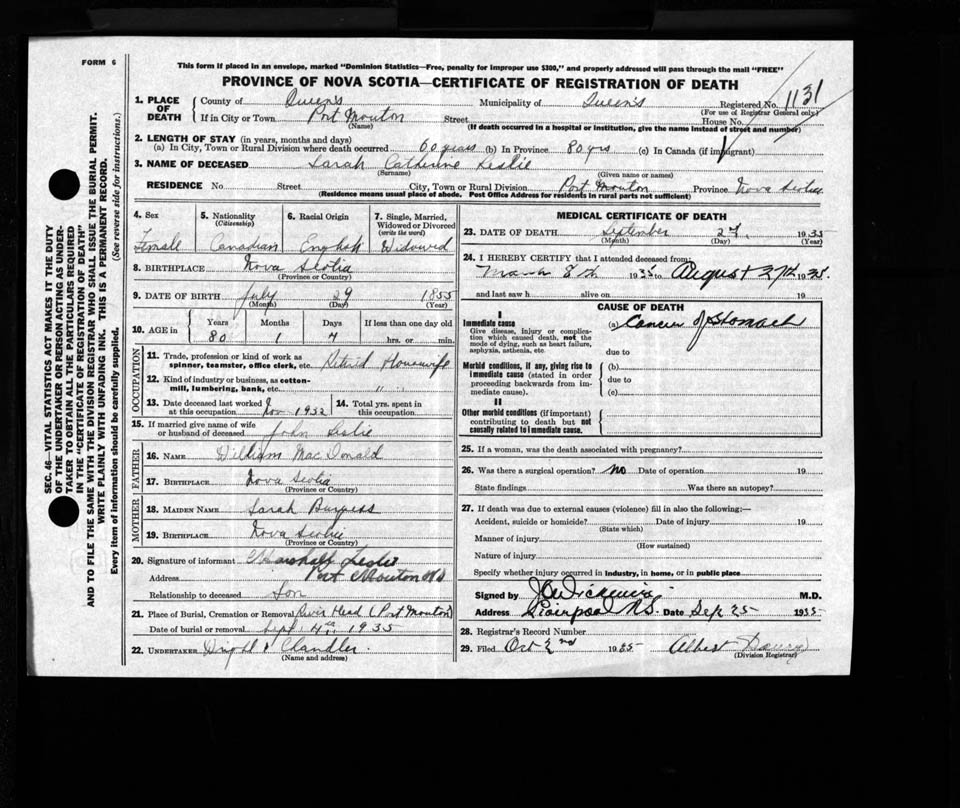 FORM 6
This form if placed in an envelope, marked "Dominion Statistics—Free, penalty for improper use $300," and properly addressed will pass through the mail "FREE"
PROVINCE OF NOVA SCOTIA—CERTIFICATE OF REGISTRATION OF DEATH
1. PLACE OF DEATH { County of Queen's Municipality of Queen's Registered No. 1131
(For use of Registrar General only)
If in City or Town Port Mouton Street House No.
(Name) (If death occurred in a hospital or institution, give the name instead of street and number)
2. LENGTH OF STAY (in years, months and days)
(a) In City, Town or Rural Division where death occurred 60 years (b) In Province 80 yrs (c) In Canada (if immigrant)
3. NAME OF DECEASED Sarah Catherine Leslie
(Surname) (Given name or names)
RESIDENCE No Street City, Town or Rural Division Port Mouton Province Nova Scotia
(Residence means usual place of abode. Post Office Address for residents in rural parts not sufficient)
4. Sex 5. Nationality (Citizenship) 6. Racial Origin 7. Single, Married, Widowed or Divorced (write the word)
Female Canadian English Widowed
8. BIRTHPLACE Nova Scotia
(Province or Country)
9. DATE OF BIRTH July 29 1855
(Month) (Day) (Year)
10. AGE in Years Months Days If less than one day old
80 1 4 hrs. or min.
OCCUPATION
11. Trade, profession or kind of work as spinner, teamster, office clerk, etc. Retired Housewife
12. Kind of industry or business, as cotton-mill, lumbering, bank, etc. " "
13. Date deceased last worked at this occupation Nov 1932 14. Total yrs. spent in this occupation
15. If married give name of wife or husband of deceased John Leslie
FATHER
16. NAME William MacDonald
17. BIRTHPLACE Nova Scotia
(Province or Country)
MOTHER
18. MAIDEN NAME Sarah Burgess
19. BIRTHPLACE Nova Scotia
(Province or Country)
20. Signature of informant Marshall Leslie
Address Port Mouton NS
Relationship to deceased Son
21. Place of Burial, Cremation or Removal River Head (Port Mouton)
Date of burial or removal Sept 4th 1935
22. UNDERTAKER Chandler
(Name and address)
MEDICAL CERTIFICATE OF DEATH
23. DATE OF DEATH September 1935
(Month) (Day) (Year)
24. I HEREBY CERTIFY that I attended deceased from:
March 8th 1935 to August 27th 1935
and last saw h alive on 19
CAUSE OF DEATH
I
Immediate cause (a) Cancer of Stomach
Give disease, injury or complication which caused death, not the mode of dying, such as heart failure, asphyxia, asthenia, etc.
due to
Morbid conditions, if any, giving rise to immediate cause (stated in order proceeding backwards from immediate cause).
(b)
due to
(c)
II
Other morbid conditions (if important) contributing to death but not causally related to immediate cause.
25. If a woman, was the death associated with pregnancy?
26. Was there a surgical operation? No Date of operation 19
State findings Was there an autopsy?
27. If death was due to external causes (violence) fill in also the following:—
Accident, suicide or homicide? Date of injury 19
(State which)
Manner of injury
(How sustained)
Nature of injury
Specify whether injury occurred in industry, in home, or in public place
Signed by M.D.
Address Liverpool N.S. Date Sep 25 1935
28. Registrar's Record Number
29. Filed Oct 2nd 1935 Albert
(Division Registrar)
SEC. 46—VITAL STATISTICS ACT MAKES IT THE DUTY
OF THE UNDERTAKER OR PERSON ACTING AS UNDER-
TAKER TO OBTAIN ALL THE PARTICULARS REQUIRED
IN THE "CERTIFICATE OF REGISTRATION OF DEATH"
AND TO FILE THE SAME WITH THE DIVISION REGISTRAR WHO SHALL ISSUE THE BURIAL PERMIT.
WRITE PLAINLY WITH UNFADING INK. THIS IS A PERMANENT RECORD.
Every item of information should be carefully supplied. (See reverse side for instructions.)